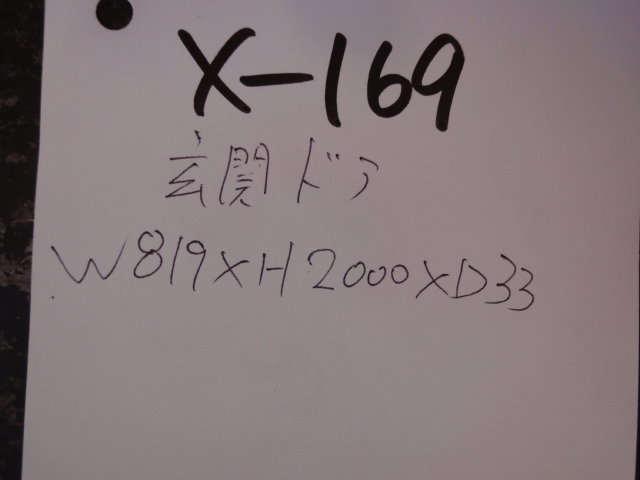 X-169
玄関ドア
W819×H2000×D33